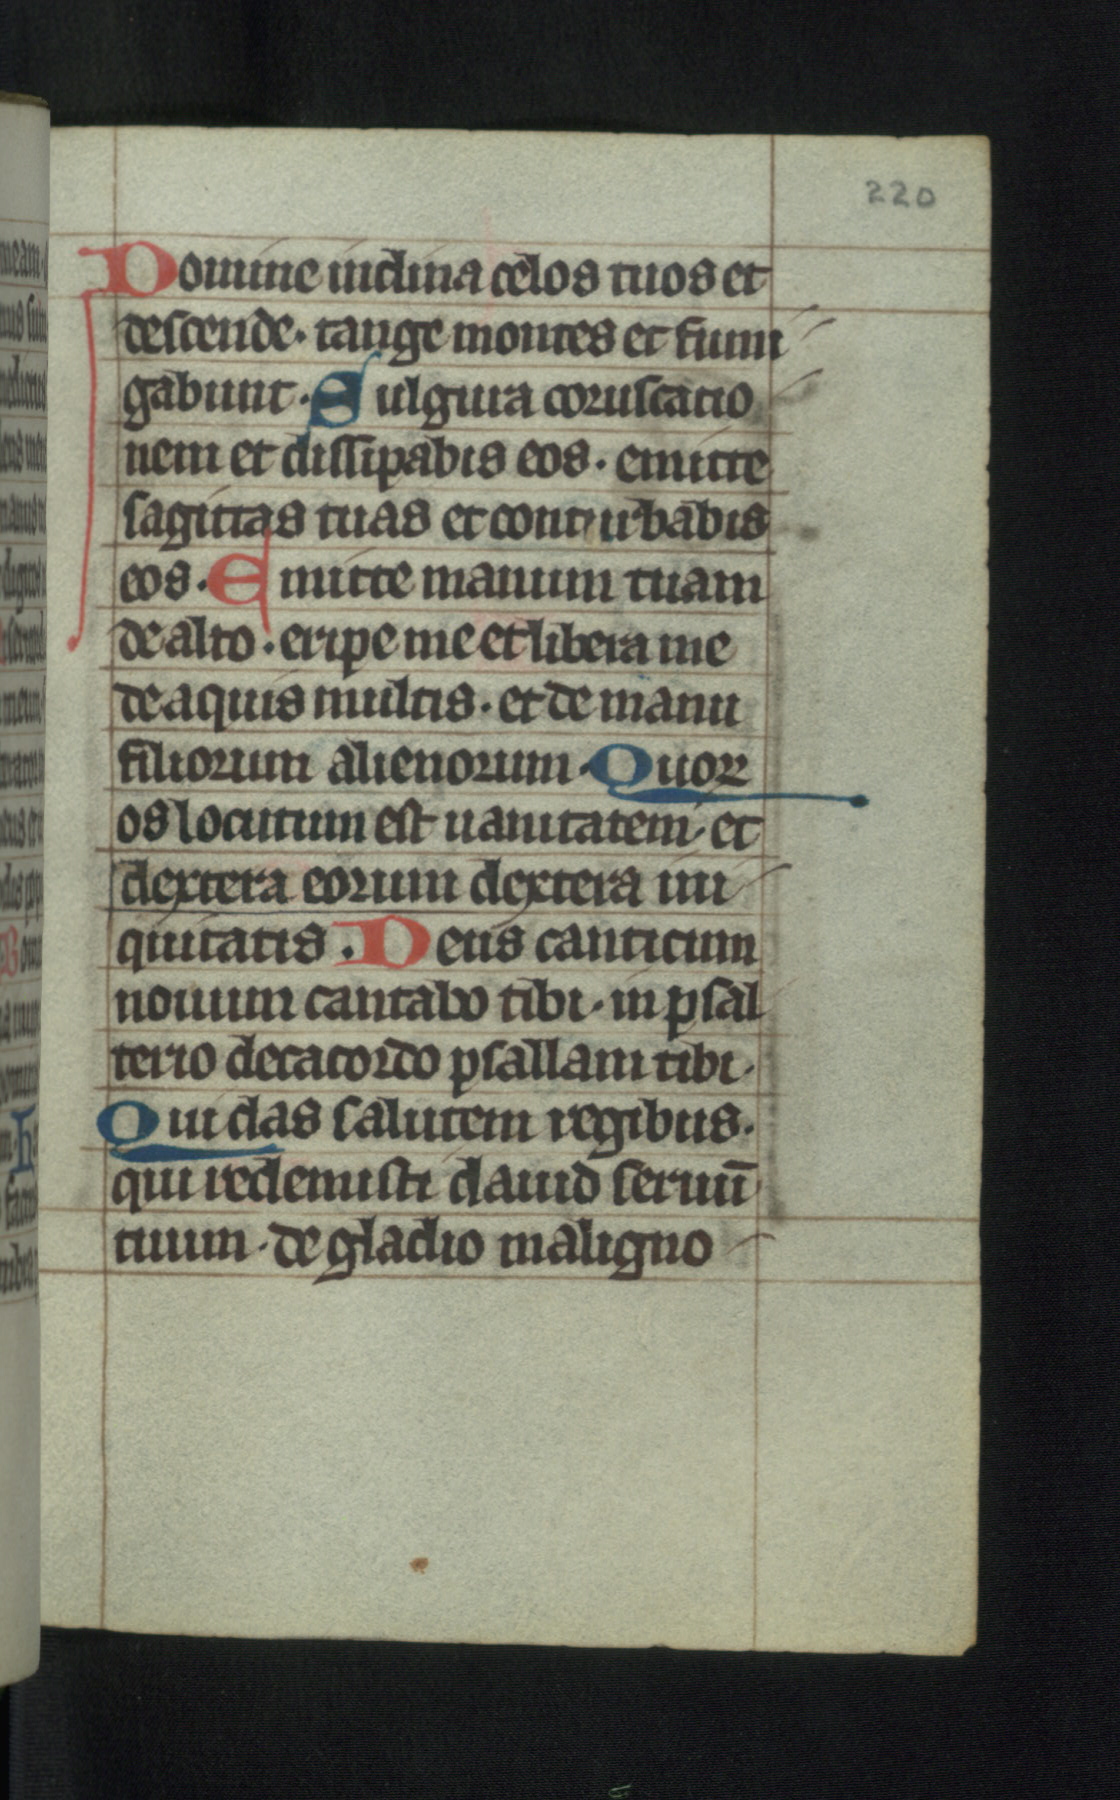 220
Domine inclina celos tuos et
descende· tange montes et fumi
gabunt· Sulgura coruscatio
nem et dissipabis eos· emitte
sagittas tuas et conturbabis
eos· Emitte manum tuam
de alto· eripe me et libera me
de aquis multis· et de manu
filiorum alienorum· Quor
os locutum est uanitatem· et
dextera eorum dextera ini
quitatis· Deus canticum
nouum cantabo tibi· in psal
terio decacordo psallam tibi·
Qui das salutem regibus·
qui redemisti dauid seruū
tuum· de gladio maligno